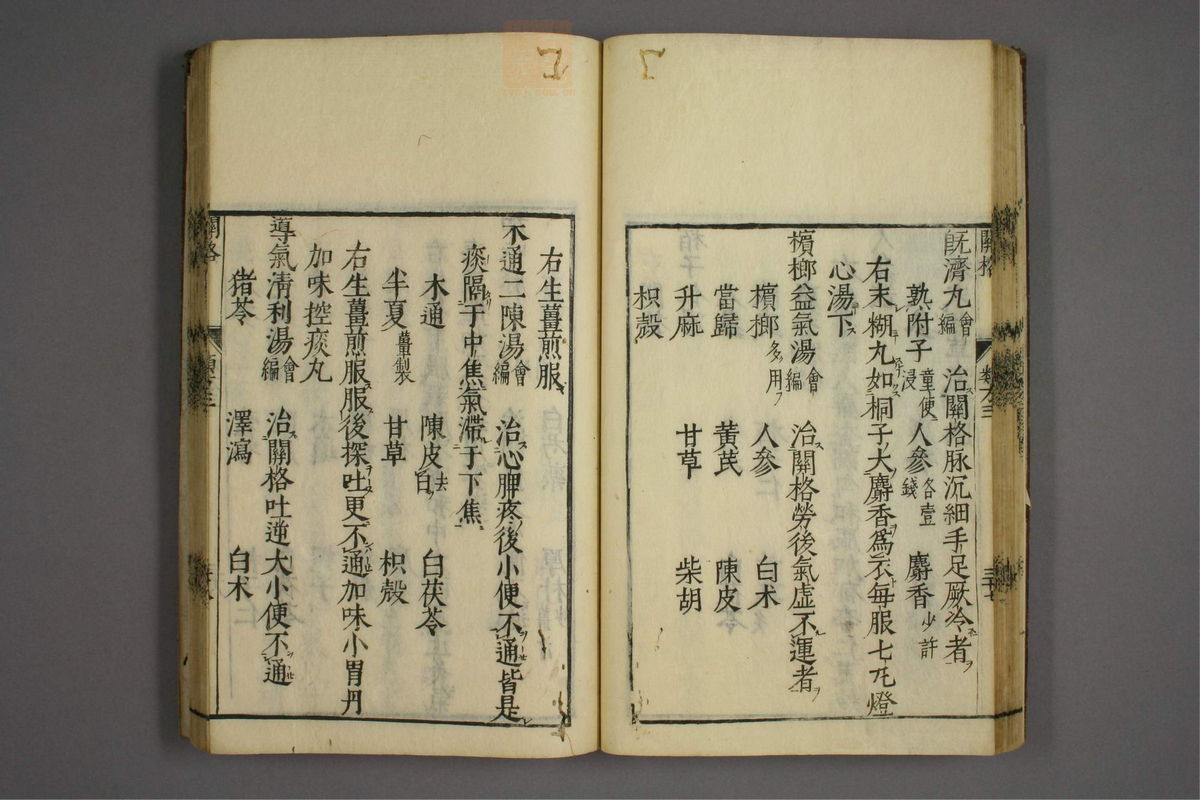 關格
既濟丸會編 治關格脉沉細手足厥冷者
熟附子童便浸 人參各壹錢 麝香少許
右末糊丸如桐子大麝香為衣每服七丸燈
心湯下
檳榔益氣湯會編 治關格勞後氣虛不運者
檳榔多用 人參 白术
當歸 黃芪 陳皮
升麻 甘草 柴胡
枳殼
右生薑煎服
木通二陳湯會編 治心脾疼後小便不通皆是
痰隔于中焦氣滯于下焦
木通 陳皮去白 白茯苓
半夏薑製 甘草 枳殼
右生薑煎服服後探吐更不通加味小胃丹
加味控痰丸
導氣清利湯會編 治關格吐逆大小便不通
猪苓 澤瀉 白术
關格